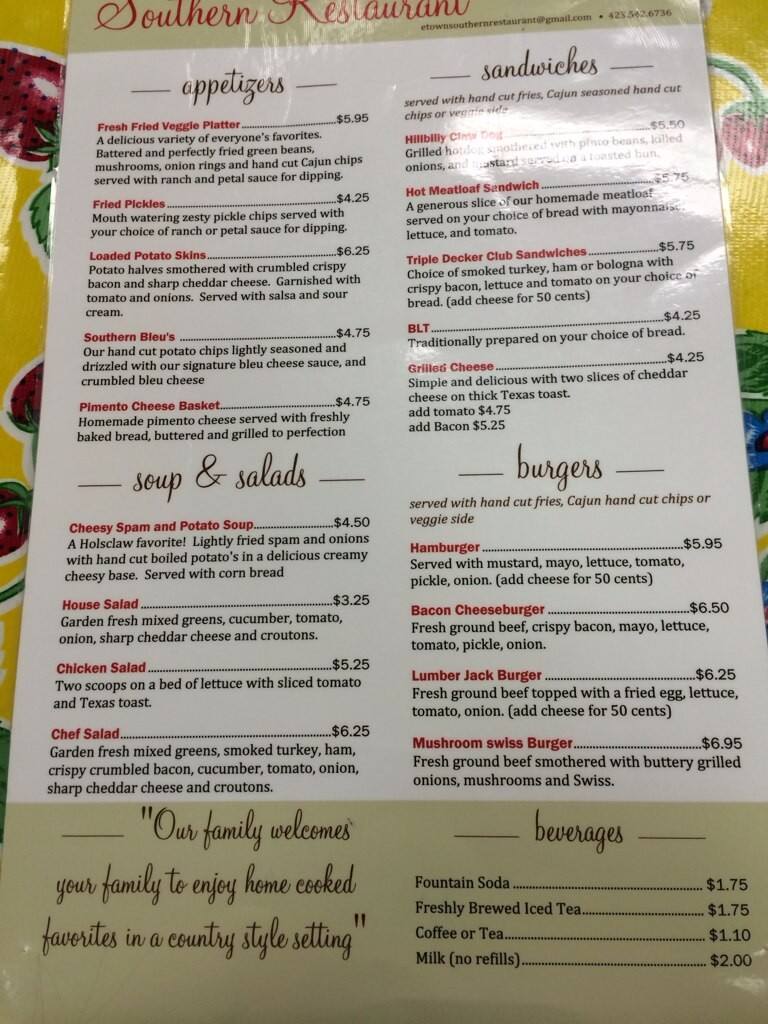 Southern Restaurant
etownsouthernrestaurant@gmail.com • 423.542.6736
appetizers
Fresh Fried Veggie Platter $5.95
A delicious variety of everyone's favorites.
Battered and perfectly fried green beans,
mushrooms, onion rings and hand cut Cajun chips
served with ranch and petal sauce for dipping.
Fried Pickles $4.25
Mouth watering zesty pickle chips served with
your choice of ranch or petal sauce for dipping.
Loaded Potato Skins $6.25
Potato halves smothered with crumbled crispy
bacon and sharp cheddar cheese. Garnished with
tomato and onions. Served with salsa and sour
cream.
Southern Bleu's $4.75
Our hand cut potato chips lightly seasoned and
drizzled with our signature bleu cheese sauce, and
crumbled bleu cheese
Pimento Cheese Basket $4.75
Homemade pimento cheese served with freshly
baked bread, buttered and grilled to perfection
soup & salads
Cheesy Spam and Potato Soup $4.50
A Holsclaw favorite! Lightly fried spam and onions
with hand cut boiled potato's in a delicious creamy
cheesy base. Served with corn bread
House Salad $3.25
Garden fresh mixed greens, cucumber, tomato,
onion, sharp cheddar cheese and croutons.
Chicken Salad $5.25
Two scoops on a bed of lettuce with sliced tomato
and Texas toast.
Chef Salad $6.25
Garden fresh mixed greens, smoked turkey, ham,
crispy crumbled bacon, cucumber, tomato, onion,
sharp cheddar cheese and croutons.
"Our family welcomes
your family to enjoy home cooked
favorites in a country style setting"
sandwiches
served with hand cut fries, Cajun seasoned hand cut
chips or veggie side
Hillbilly Dog $5.50
Grilled hotdog smothered with pinto beans, killed
onions, and mustard served on a toasted bun.
Hot Meatloaf Sandwich $5.75
A generous slice of our homemade meatloaf
served on your choice of bread with mayonnaise,
lettuce, and tomato.
Triple Decker Club Sandwiches $5.75
Choice of smoked turkey, ham or bologna with
crispy bacon, lettuce and tomato on your choice of
bread. (add cheese for 50 cents)
BLT $4.25
Traditionally prepared on your choice of bread.
Grilled Cheese $4.25
Simple and delicious with two slices of cheddar
cheese on thick Texas toast.
add tomato $4.75
add Bacon $5.25
burgers
served with hand cut fries, Cajun hand cut chips or
veggie side
Hamburger $5.95
Served with mustard, mayo, lettuce, tomato,
pickle, onion. (add cheese for 50 cents)
Bacon Cheeseburger $6.50
Fresh ground beef, crispy bacon, mayo, lettuce,
tomato, pickle, onion.
Lumber Jack Burger $6.25
Fresh ground beef topped with a fried egg, lettuce,
tomato, onion. (add cheese for 50 cents)
Mushroom swiss Burger $6.95
Fresh ground beef smothered with buttery grilled
onions, mushrooms and Swiss.
beverages
Fountain Soda $1.75
Freshly Brewed Iced Tea $1.75
Coffee or Tea $1.10
Milk (no refills) $2.00